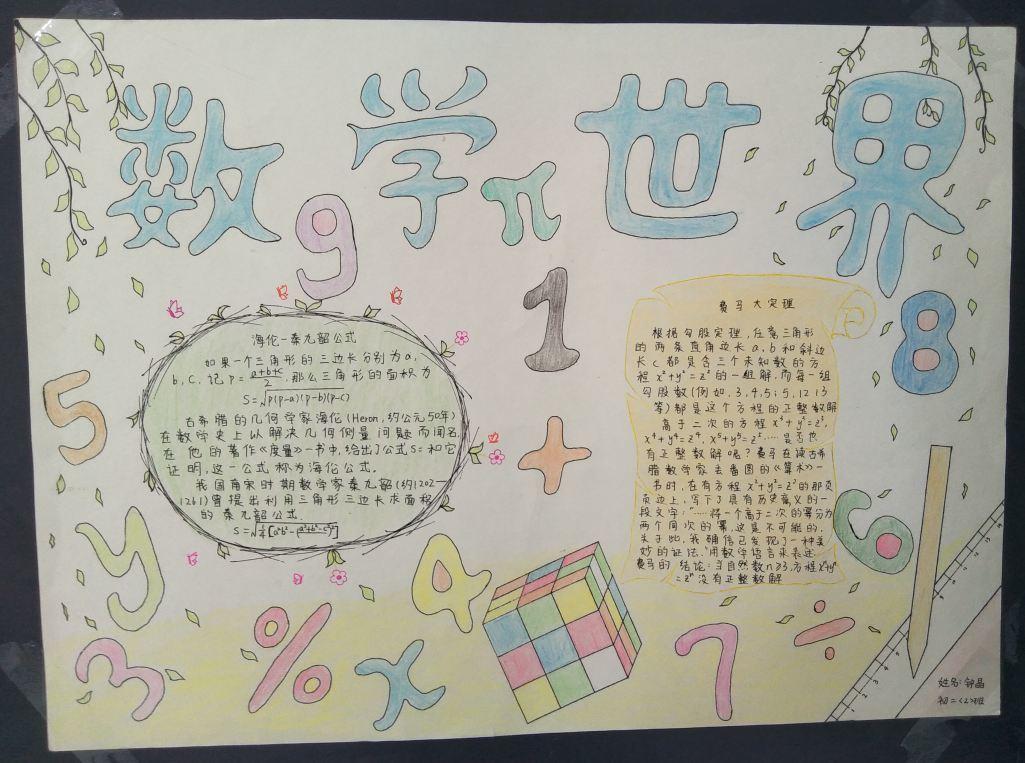 数学世界
9
π
1
8
5
+
6
y
4
3
%
x
7
÷
海伦-秦九韶公式
如果一个三角形的三边长分别为a,
b,c,记p=\frac{a+b+c}{2},那么三角形的面积为
S=√p(p-a)(p-b)(p-c)
古希腊的几何学家海伦(Heron,约公元50年)
在数学史上以解决几何侧量问题而闻名.
在他的著作《度量》一书中,给出了公式S=和它
证明,这一公式称为海伦公式.
我国南宋时期数学家秦九韶(约1202-
1261)曾提出利用三角形三边长求面积
的秦九韶公式.
S=√¼[a²b²-(\frac{a²+b²-c²}{2})²]
费马大定理
根据勾股定理,任意三角形
的两条直角边长a,b和斜边
长c都是含三个未知数的方
程x²+y²=z²的一组解,而每一组
勾股数(例如,3,4,5;5,12,13
等)都是这个方程的正整数解
高于二次的方程x³+y³=z³,
x⁴+y⁴=z⁴,x⁵+y⁵=z⁵……是否也
有正整数解呢?费马在读古希
腊数学家丢番图的《算术》一
书时,在有方程x²+y²=z²的那页
页边上,写下了具有历史意义的一
段文字:"……将一个高于二次的幂分为
两个同次的幂,这是不可能的.
关于此,我确信已发现了一种美
妙的证法."用数学语言来表述
费马的结论:当自然数n≥3,方程xⁿ+yⁿ
=zⁿ没有正整数解
姓名:钟晶
初二<2>班